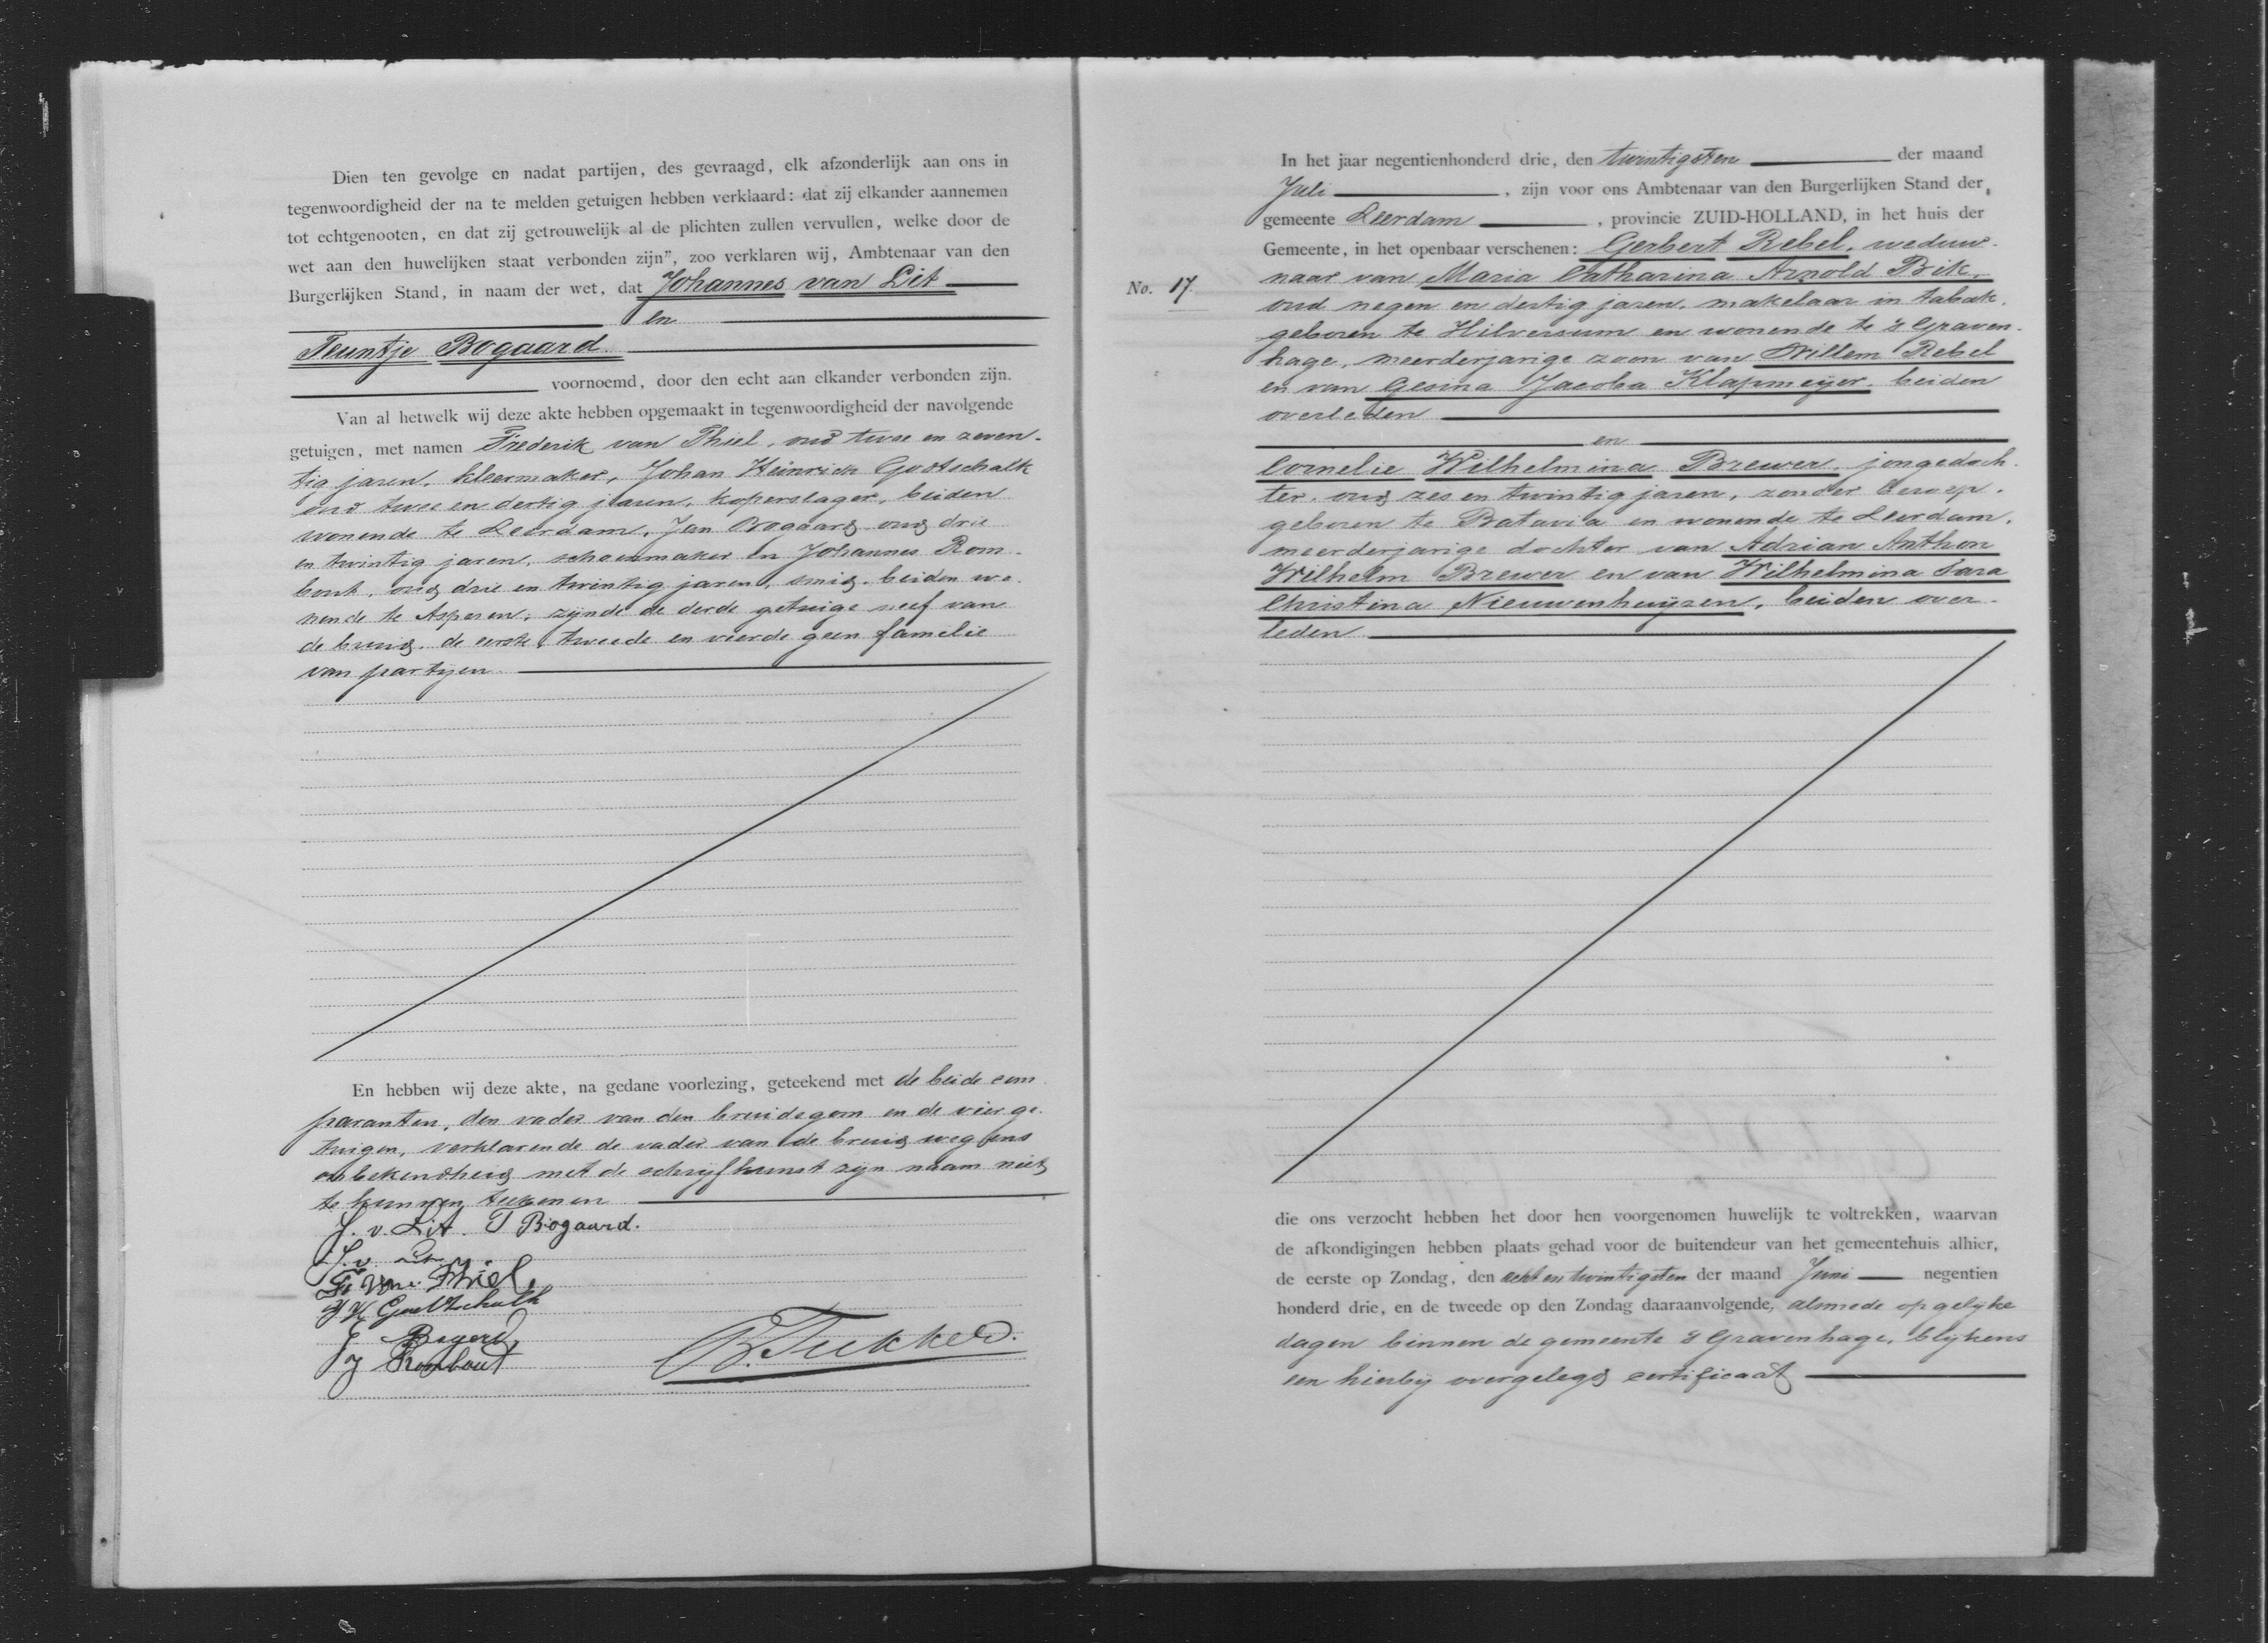 Dien ten gevolge en nadat partijen, des gevraagd, elk afzonderlijk aan ons in
tegenwoordigheid der na te melden getuigen hebben verklaard: dat zij elkander aannemen
tot echtgenooten, en dat zij getrouwelijk al de plichten zullen vervullen, welke door de
wet aan den huwelijken staat verbonden zijn", zoo verklaren wij, Ambtenaar van den
Burgerlijken Stand, in naam der wet, dat Johannes van Lit
en
Teuntje Bogaard
voornoemd, door den echt aan elkander verbonden zijn.
Van al hetwelk wij deze akte hebben opgemaakt in tegenwoordigheid der navolgende
getuigen, met namen Frederik van Thiel, oud twee en zeven-
tig jaren, kleermaker, Johan Heinrich Gottschalk
oud twee en dertig jaren, koperslager, beiden
wonende te Leerdam, Jan Bogaard oud drie
en twintig jaren, schoenmaker en Johannes Rom-
bout, oud drie en twintig jaren, smid, beiden wo-
nende te Asperen; zijnde de derde getuige neef van
de bruid, de eerste, tweede en vierde geen familie
van partijen
En hebben wij deze akte, na gedane voorlezing, geteekend met de beide com
paranten, den vader van den bruidegom en de vier ge-
tuigen, verklarende de vader van de bruid wegens
onbekendheid met de schrijfkunst zijn naam niet
te kunnen teekenen
J. v. Lit. T Bogaard.
J. v. Lit
Fr van Thiel,
J H Gottschalk
J Bogerd,
J Rombout
B. Tukker.
In het jaar negentienhonderd drie, den twintigsten der maand
Juli, zijn voor ons Ambtenaar van den Burgerlijken Stand der
gemeente Leerdam, provincie ZUID-HOLLAND, in het huis der
Gemeente, in het openbaar verschenen: Gerbert Rebel, weduw-
No. 17. naar van Maria Catharina Arnold Brik,
oud negen en dertig jaren, makelaar in tabak,
geboren te Hilversum en wonende te 's Graven-
hage, meerderjarige zoon van Willem Rebel
en van Gesina Jacoba Klapmeijer, beiden
overleden
en
Cornelie Wilhelmina Brewer, jongedoch-
ter, oud zes en twintig jaren, zonder beroep,
geboren te Batavia en wonende te Leerdam,
meerderjarige dochter van Adrian Anthon
Wilhelm Brewer en van Wilhelmina Sara
Christina Nieuwenhuijzen, beiden over-
leden
die ons verzocht hebben het door hen voorgenomen huwelijk te voltrekken, waarvan
de afkondigingen hebben plaats gehad voor de buitendeur van het gemeentehuis alhier,
de eerste op Zondag, den acht en twintigsten der maand Juni negentien
honderd drie, en de tweede op den Zondag daaraanvolgende, alsmede op gelijke
dagen binnen de gemeente 's Gravenhage, blijkens
een hierbij overgelegd certificaat